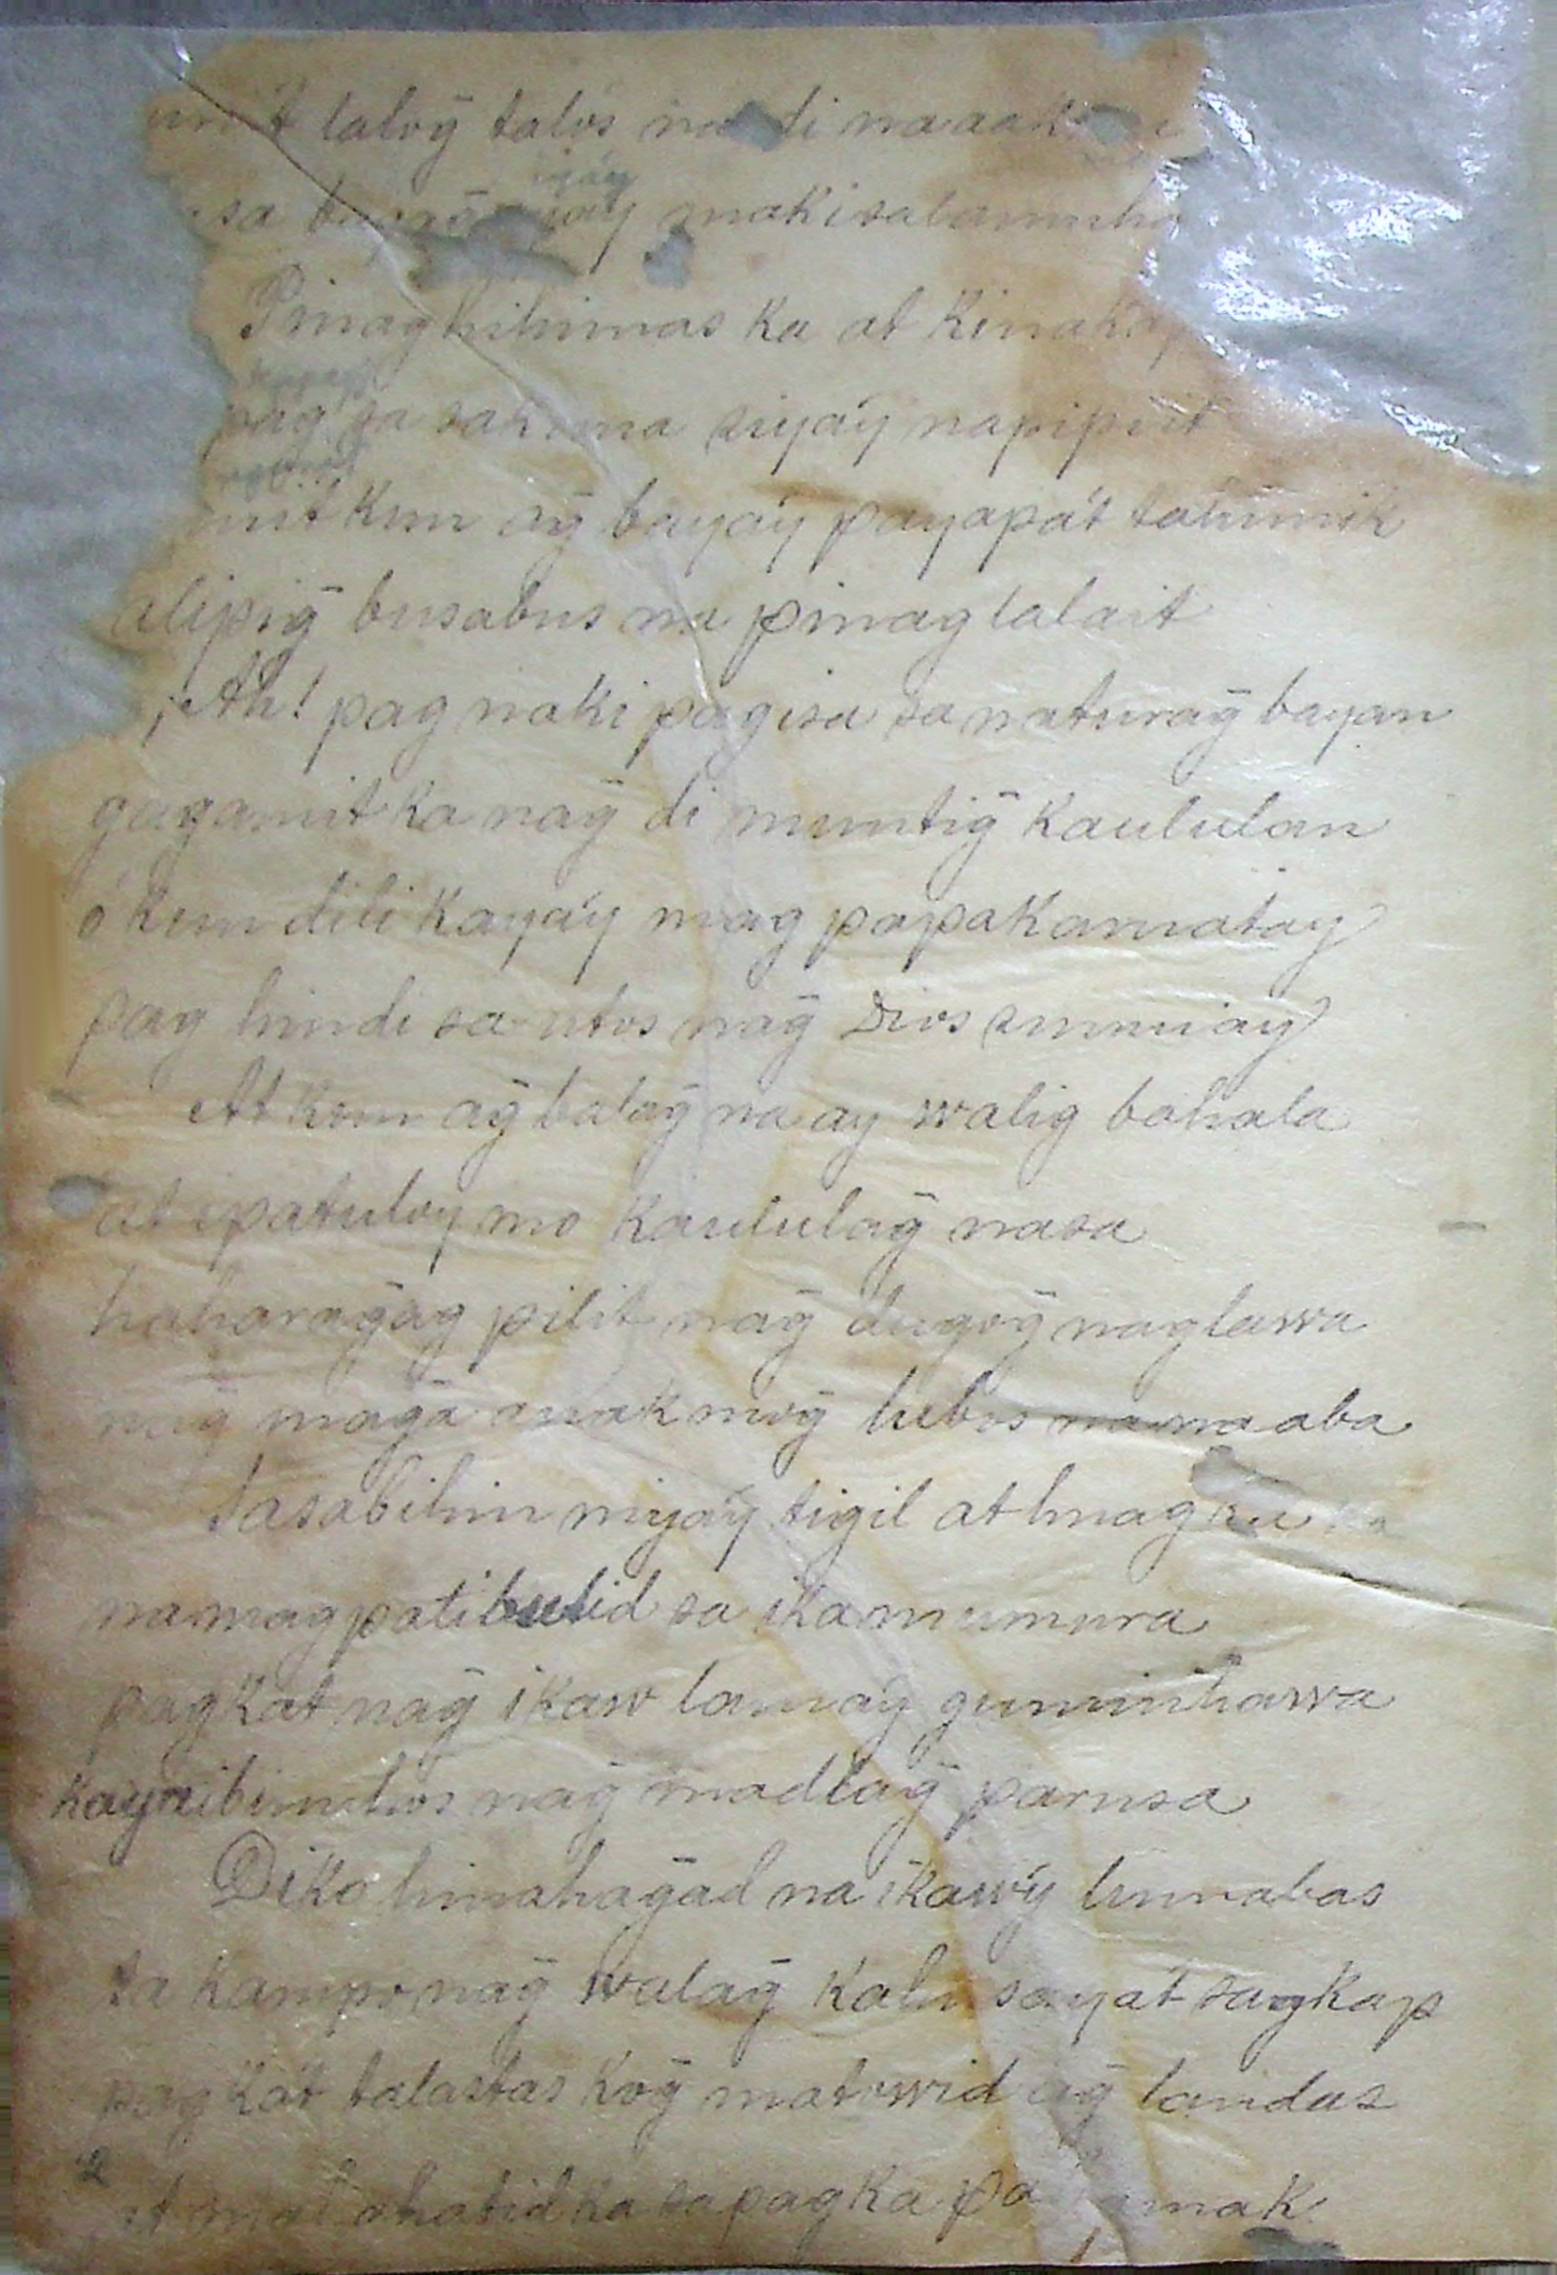 lalog̃ talos na di
sa makisalamuha
Pinaghihimas ka at
pag sa sakuna siyáy napipiit
kun ag̃ bayáy payapát tahimik
alipig̃ busabus na pinaglalait
¡Ah! pag naki pagisa sa naturag̃ bayan
gagamit ka nag̃ di muntig̃ kaululan
ó kun dili kayáy mag papakamatay
pag hindi sa utos nag̃ Dios sumuay
At kun ag̃ balag̃ na ay walig bahala
at ipatuloy mo kaululag̃ nasa
haharag̃ag pilit nag̃ dugóg̃ naglawa
nag̃ mag̃a anak mog̃ lubos na naaba
Sasabihin niyáy tigil at
na magpatibulid sa ikamumura
pagkat nag̃ ikaw lamag̃ guminhawa
kaya ibinubos nag̃ madlag̃ parusa
Diko hinahag̃ad na ikawý lumabas
sa kampo nag̃ walag̃ kalu sayát sagkap
pagkát talastas kog̃ matuwid ag̃ landas
ka sa pagka